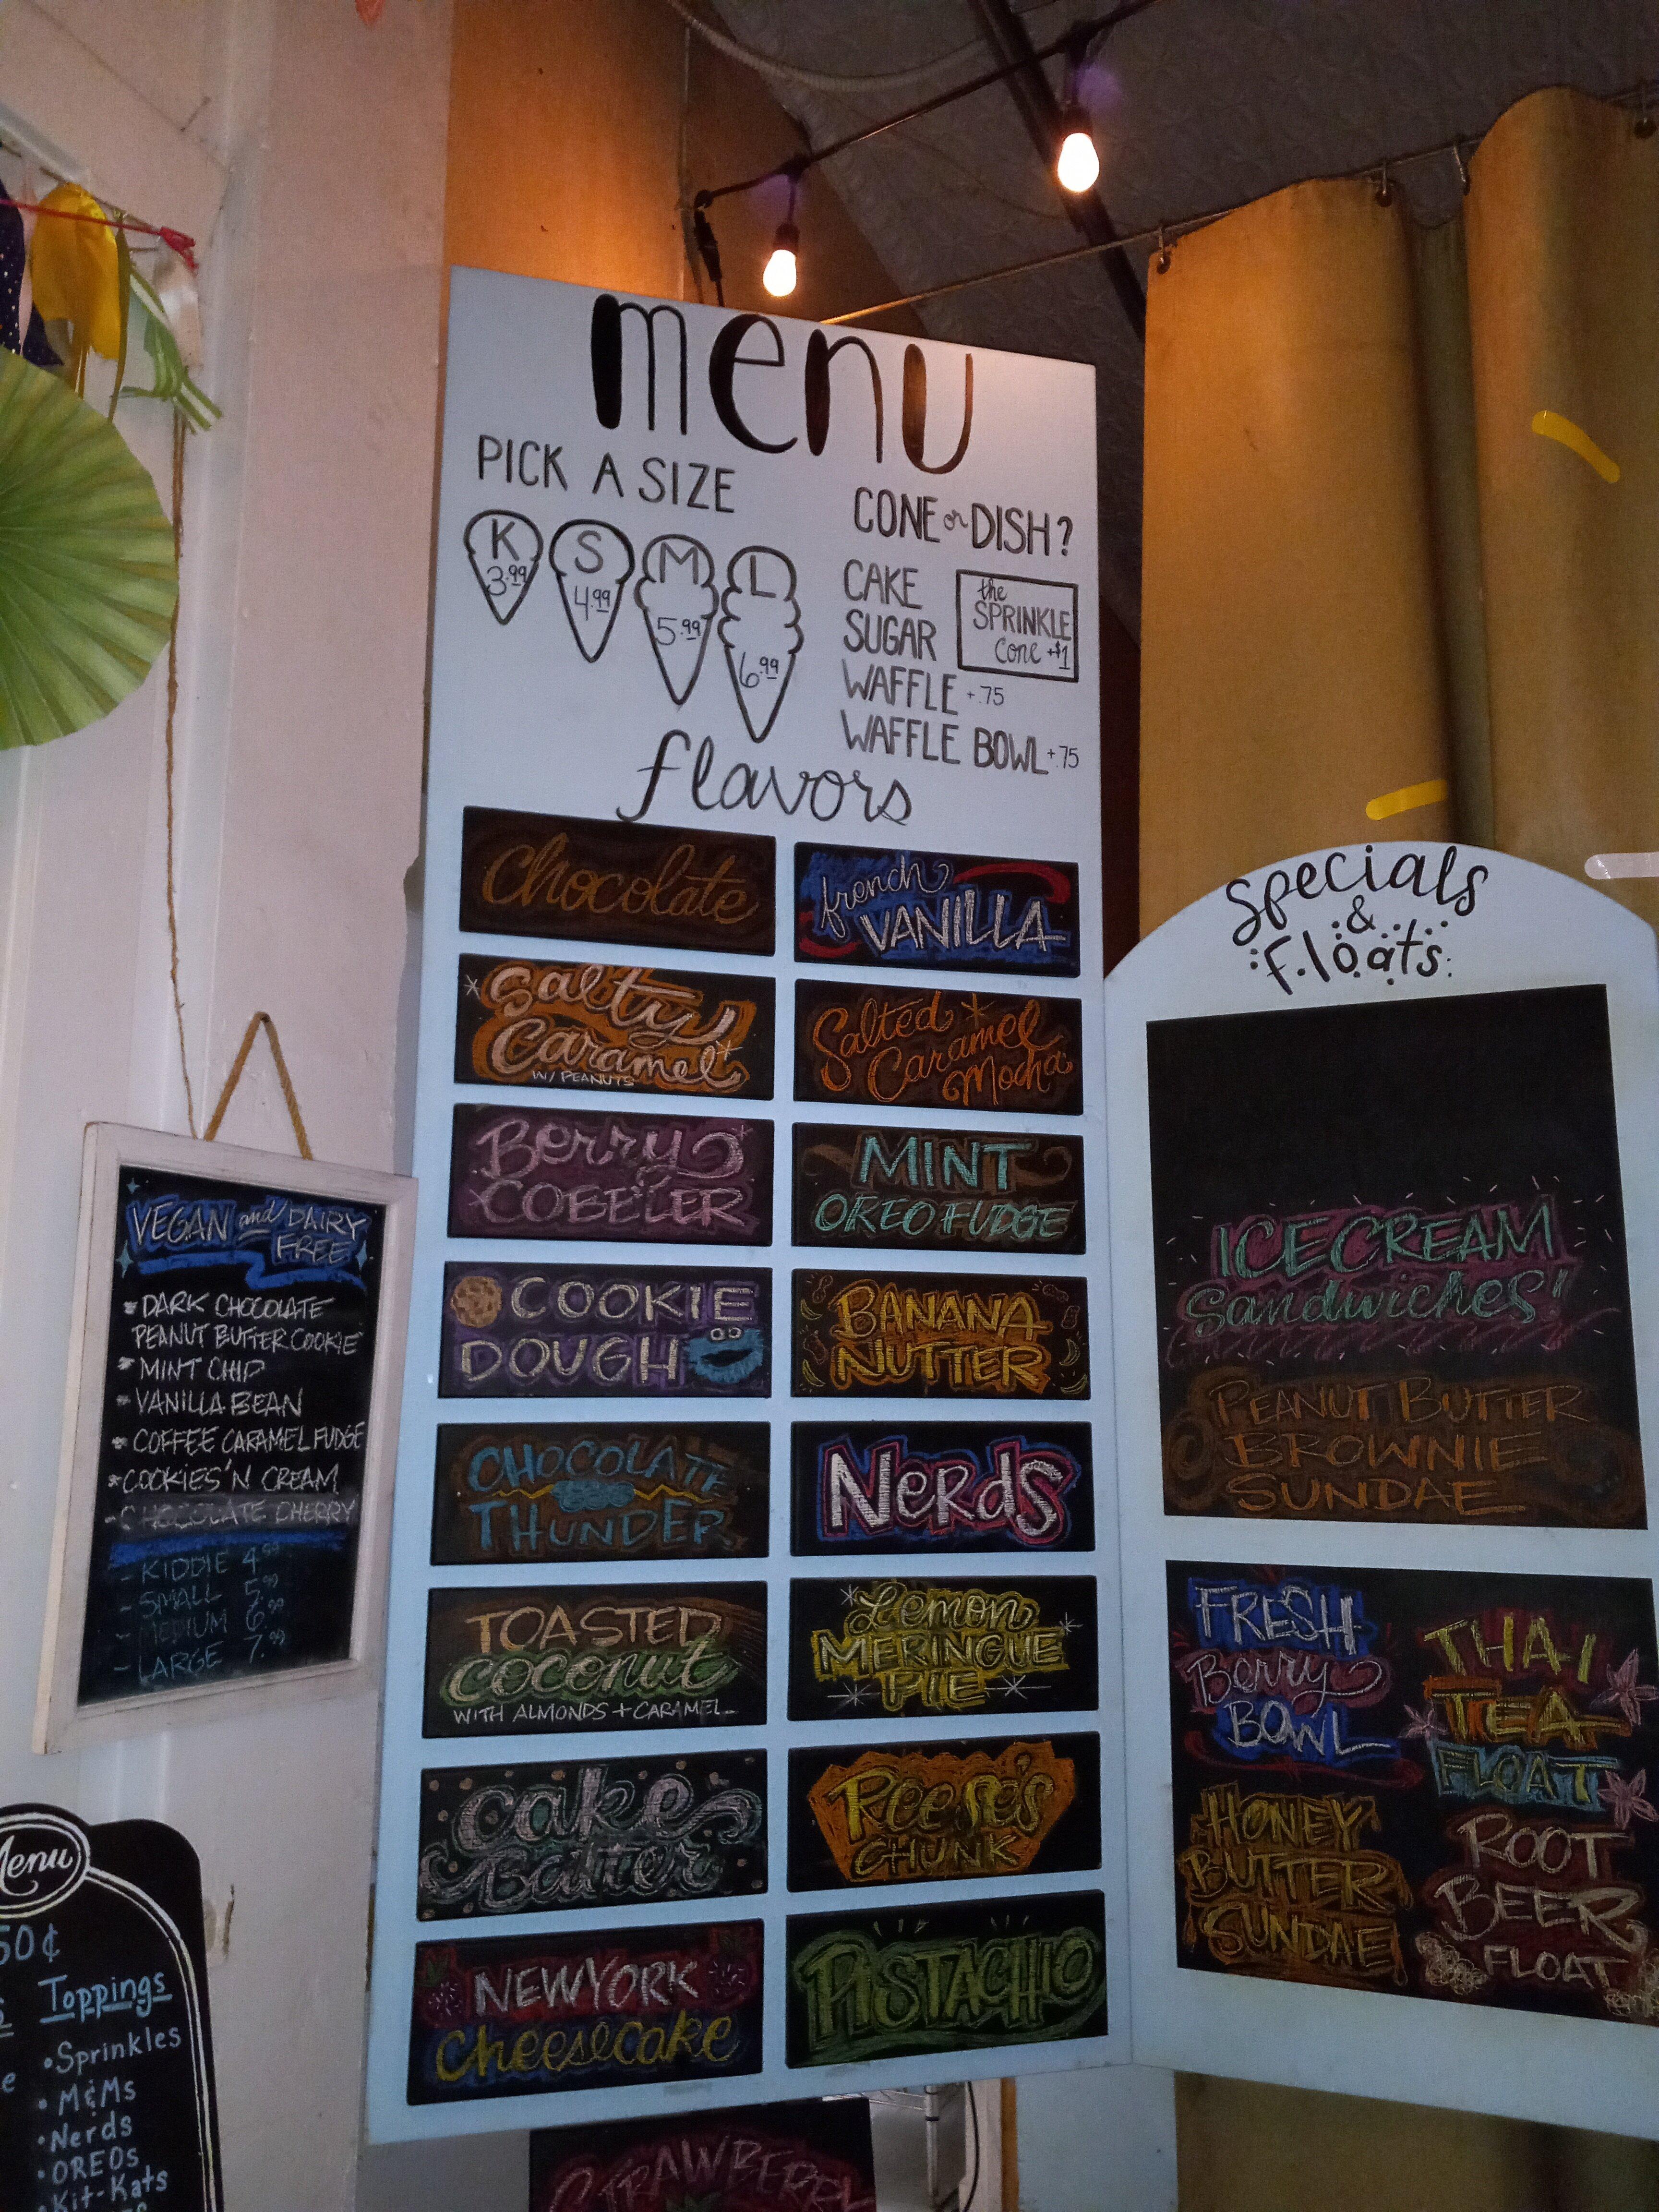 menu
PICK A SIZE
K
3.99
S
4.99
M
5.99
L
6.99
CONE or DISH?
CAKE
SUGAR
WAFFLE +.75
WAFFLE BOWL +.75
the
SPRINKLE
Cone +$1
flavors
Chocolate
french
VANILLA
Salty
Caramel
W/ PEANUTS
Salted
Caramel
Mocha
Berry
COBBLER
MINT
OREO FUDGE
COOKIE
DOUGH
BANANA
NUTTER
CHOCOLATE
THUNDER
NeRdS
TOASTED
coconut
WITH ALMONDS + CARAMEL
Lemon
MERINGUE
PIE
cake
Batter
Reese's
CHUNK
NEW YORK
Cheesecake
PISTACHIO
STRAWBERRY
Specials
&
Floats
ICE CREAM
Sandwiches!
PEANUT BUTTER
BROWNIE
SUNDAE
FRESH
Berry
BOWL
THAI
TEA
FLOAT
HONEY
BUTTER
SUNDAE
ROOT
BEER
FLOAT
VEGAN and DAIRY
FREE
* DARK CHOCOLATE
PEANUT BUTTER COOKIE
* MINT CHIP
* VANILLA BEAN
* COFFEE CARAMEL FUDGE
* COOKIES 'N CREAM
- CHOCOLATE CHERRY
- KIDDIE 4.99
- SMALL 5.99
- MEDIUM 6.99
- LARGE 7.99
Menu
50¢
Toppings
• Sprinkles
• M&Ms
• Nerds
• OREOs
• Kit-Kats